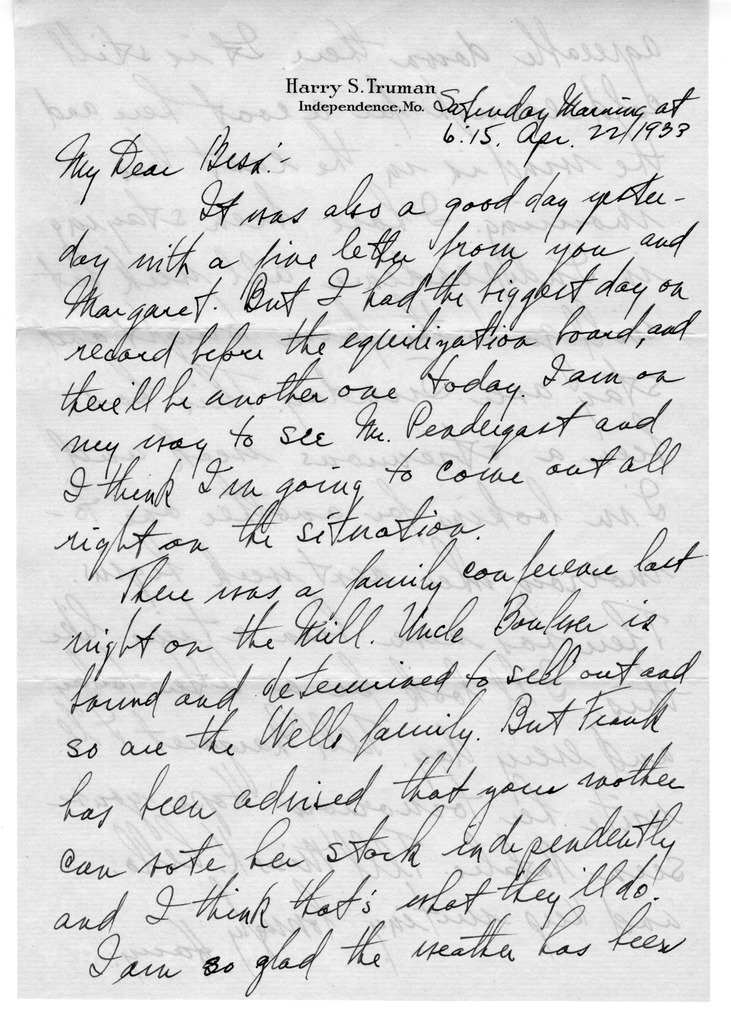 Harry S. Truman
Independence, Mo.
Saturday Morning at
6:15. Apr. 22/1933
My Dear Bess:-
It was also a good day yester-
day with a fine letter from you and
Margaret. But I had the biggest day on
record before the equilization board, and
there'll be another one today. I am on
my way to see Mr. Pendergast and
I think I'm going to come out all
right on the situation.
There was a family conference last
night on the Mill. Uncle Boulwer is
bound and determined to sell out and
so are the Wells family. But Frank
has been advised that your mother
can vote her stock independently
and I think that's what they'll do.
I am so glad the weather has been